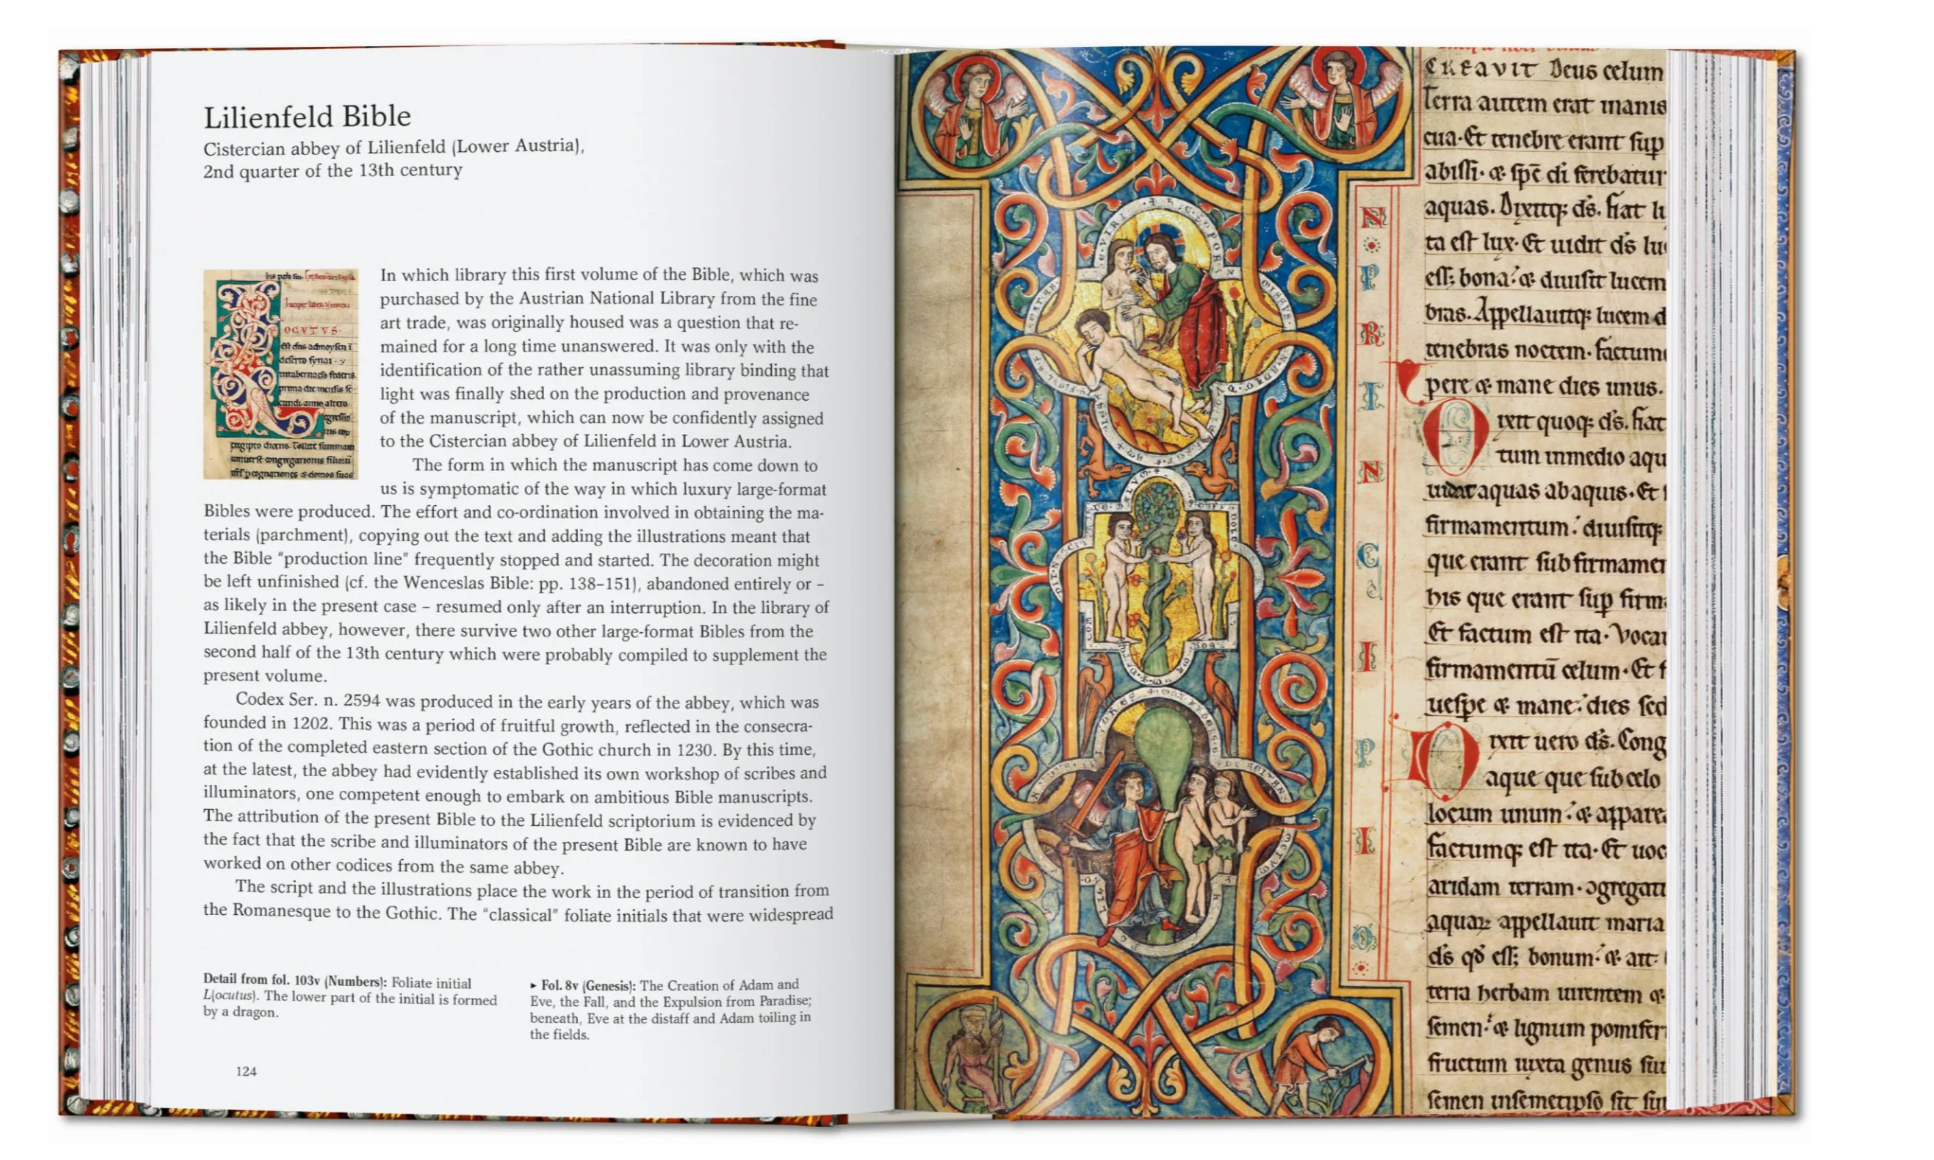 Lilienfeld Bible
Cistercian abbey of Lilienfeld (Lower Austria),
2nd quarter of the 13th century
OCVTVS
In which library this first volume of the Bible, which was
purchased by the Austrian National Library from the fine
art trade, was originally housed was a question that re-
mained for a long time unanswered. It was only with the
identification of the rather unassuming library binding that
light was finally shed on the production and provenance
of the manuscript, which can now be confidently assigned
to the Cistercian abbey of Lilienfeld in Lower Austria.
The form in which the manuscript has come down to
us is symptomatic of the way in which luxury large-format
Bibles were produced. The effort and co-ordination involved in obtaining the ma-
terials (parchment), copying out the text and adding the illustrations meant that
the Bible "production line" frequently stopped and started. The decoration might
be left unfinished (cf. the Wenceslas Bible: pp. 138–151), abandoned entirely or –
as likely in the present case – resumed only after an interruption. In the library of
Lilienfeld abbey, however, there survive two other large-format Bibles from the
second half of the 13th century which were probably compiled to supplement the
present volume.
Codex Ser. n. 2594 was produced in the early years of the abbey, which was
founded in 1202. This was a period of fruitful growth, reflected in the consecra-
tion of the completed eastern section of the Gothic church in 1230. By this time,
at the latest, the abbey had evidently established its own workshop of scribes and
illuminators, one competent enough to embark on ambitious Bible manuscripts.
The attribution of the present Bible to the Lilienfeld scriptorium is evidenced by
the fact that the scribe and illuminators of the present Bible are known to have
worked on other codices from the same abbey.
The script and the illustrations place the work in the period of transition from
the Romanesque to the Gothic. The "classical" foliate initials that were widespread
Detail from fol. 103v (Numbers): Foliate initial
L(ocutus). The lower part of the initial is formed
by a dragon.
▸ Fol. 8v (Genesis): The Creation of Adam and
Eve, the Fall, and the Expulsion from Paradise;
beneath, Eve at the distaff and Adam toiling in
the fields.
124
N
P
R
I
N
C
I
P
I
CREAVIT Deus celum
Terra autem erat inanis
cua· Et tenebre erant sup
abissi· & spc di ferebatur
aquas. Dixitq; ds. fiat lu
ta est lux· Et uidit ds lu
ess; bona: & diuisit lucem
bras. Appellauitq; lucem d
tenebras noctem· factum
pere & mane dies unus.
Dixit quoq; ds. fiat
tum inmedio aqu
aquas abaquis· Et
firmamentum: diuisitq;
que erant sub firmamen
his que erant sup firm
Et factum est ita· Vocau
firmamentū celum· Et f
uespe & mane: dies sed
Dixit uero ds. Cong
aque que sub celo
locum unum: & appare
factumq; est ita· Et uoc
aridam terram· ɔgregati
aquaꝝ appellauit maria
ds qd ess; bonum: & ait
terra herbam uirentem &
semen: & lignum pomifer
fructum iuxta genus su
semen insemetipso sit su